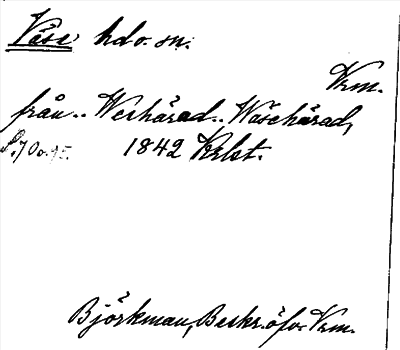 Väse hd o. sn.
Vrm.
från.. Weshärad.. Wäsehärad,
S. 70 o. 95. 1842 Krlst.
Björkman, Beskr. öfv. Vrm.